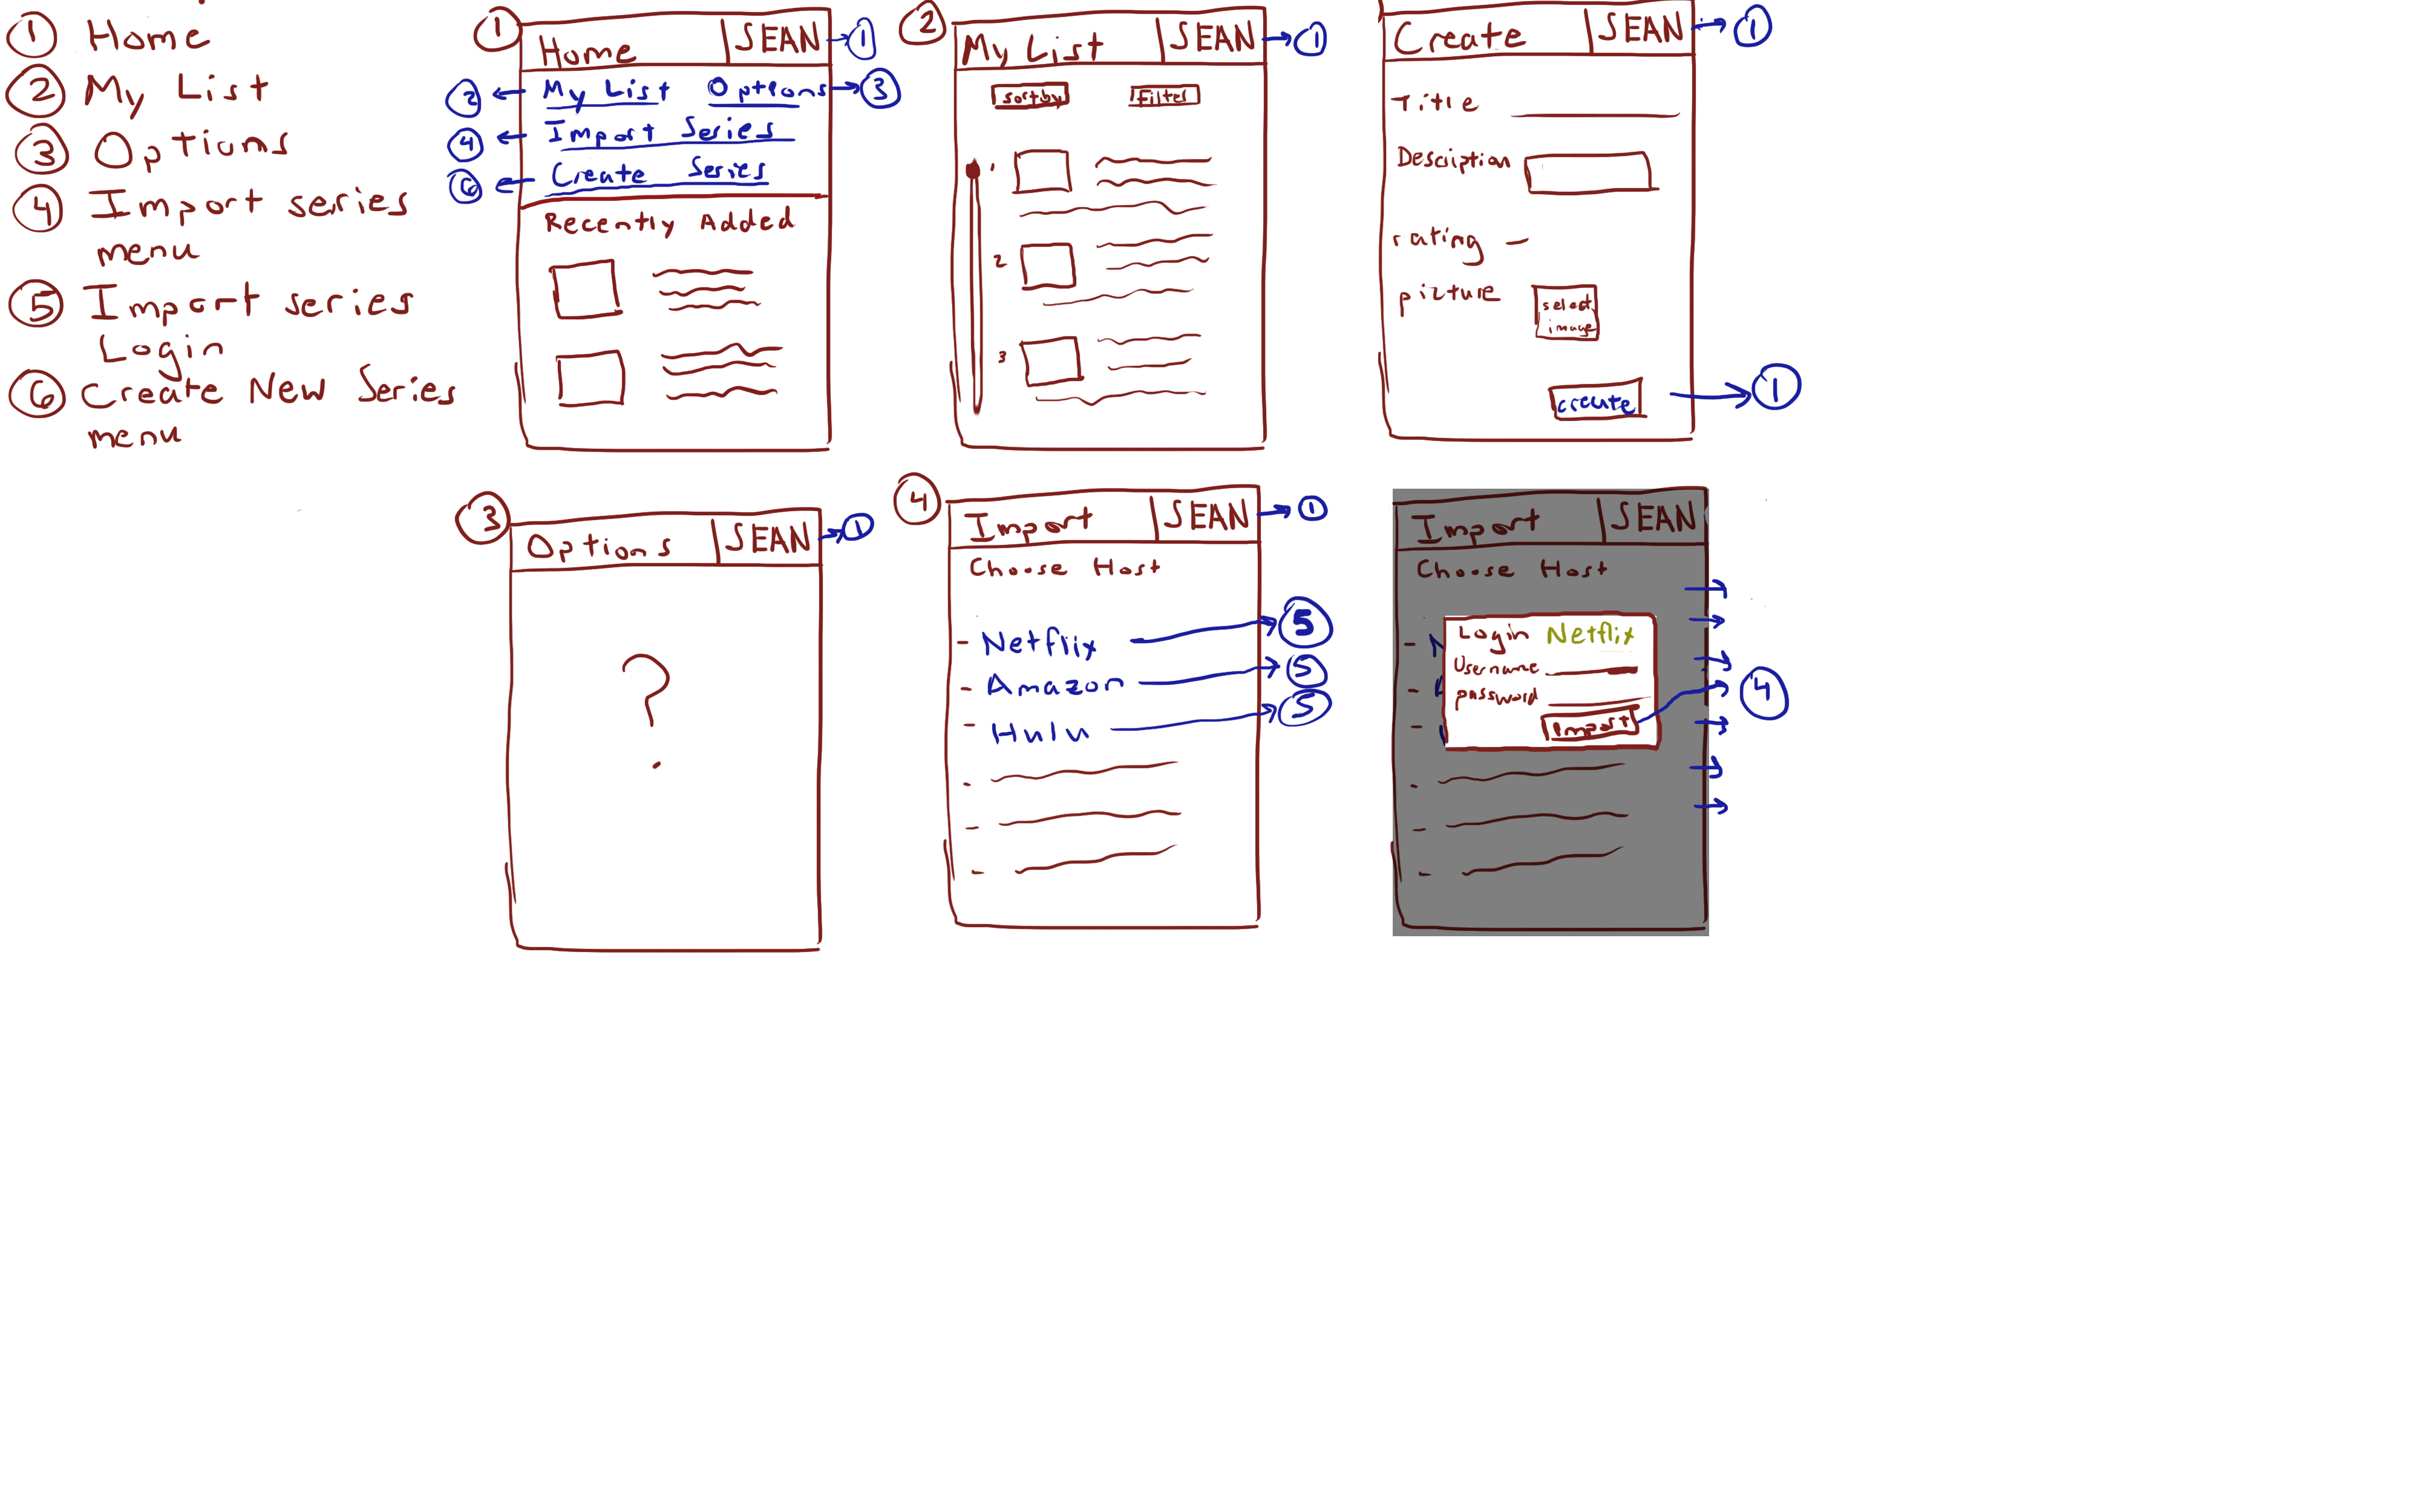 1 Home
2 My List
3 Options
4 Import series
menu
5 Import series
Login
6 Create New Series
menu
1
Home SEAN 1
2 My List Options 3
4 Import Series
6 Create Series
Recently Added
2
My List SEAN 1
sortby filter
1
2
3
Create SEAN 1
Title
Desciption
rating
picture
select
image
create 1
3
Options SEAN 1
?
4
Import SEAN 1
Choose Host
- Netflix 5
- Amazon 5
- Hulu 5
Import SEAN
Choose Host
Login Netflix
Username
password
Import 4